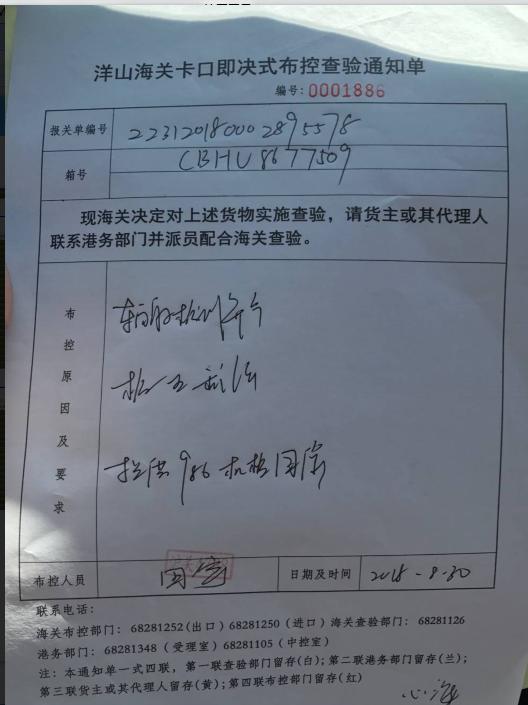 洋山海关卡口即决式布控查验通知单
编号：0001886
报关单编号 223120180002895578
箱号 CBHU8677509
现海关决定对上述货物实施查验，请货主或其代理人
联系港务部门并派员配合海关查验。
布控原因及要求
辐射检测
986机检图像
布控人员
日期及时间 2018-8-30
联系电话：
海关布控部门：68281252(出口)68281250(进口)海关查验部门：68281126
港务部门：68281348(受理室)68281105(中控室)
注：本通知单一式四联，第一联查验部门留存(白)；第二联港务部门留存(兰)；
第三联货主或其代理人留存(黄)；第四联布控部门留存(红)